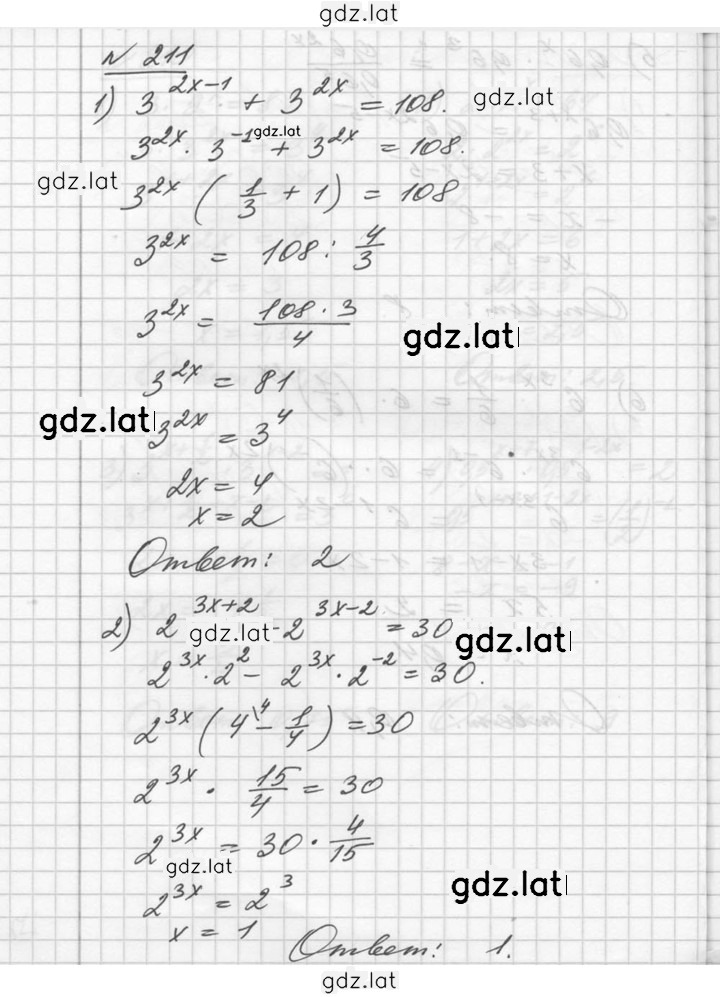 gdz.lat
N 211
1) 3^(2x-1) + 3^(2x) = 108. gdz.lat
3^(2x) · 3^(-1) gdz.lat + 3^(2x) = 108.
gdz.lat 3^(2x) ( 1/3 + 1 ) = 108
3^(2x) = 108 : 4/3
3^(2x) = (108 · 3)/4 gdz.lat
3^(2x) = 81
gdz.lat 3^(2x) = 3^4
2x = 4
x = 2
Ответ: 2
2) 2^(3x+2) gdz.lat - 2^(3x-2) = 30 gdz.lat
2^(3x) · 2^2 - 2^(3x) · 2^(-2) = 30.
2^(3x) ( 4\4 - 1/4 ) = 30
2^(3x) · 15/4 = 30
2^(3x) = 30 · 4/15
gdz.lat
2^(3x) = 2^3 gdz.lat
x = 1
Ответ: 1.
gdz.lat